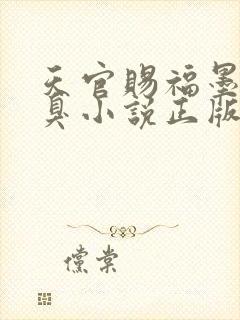 天官賜福墨
臭小說正版
儻棠